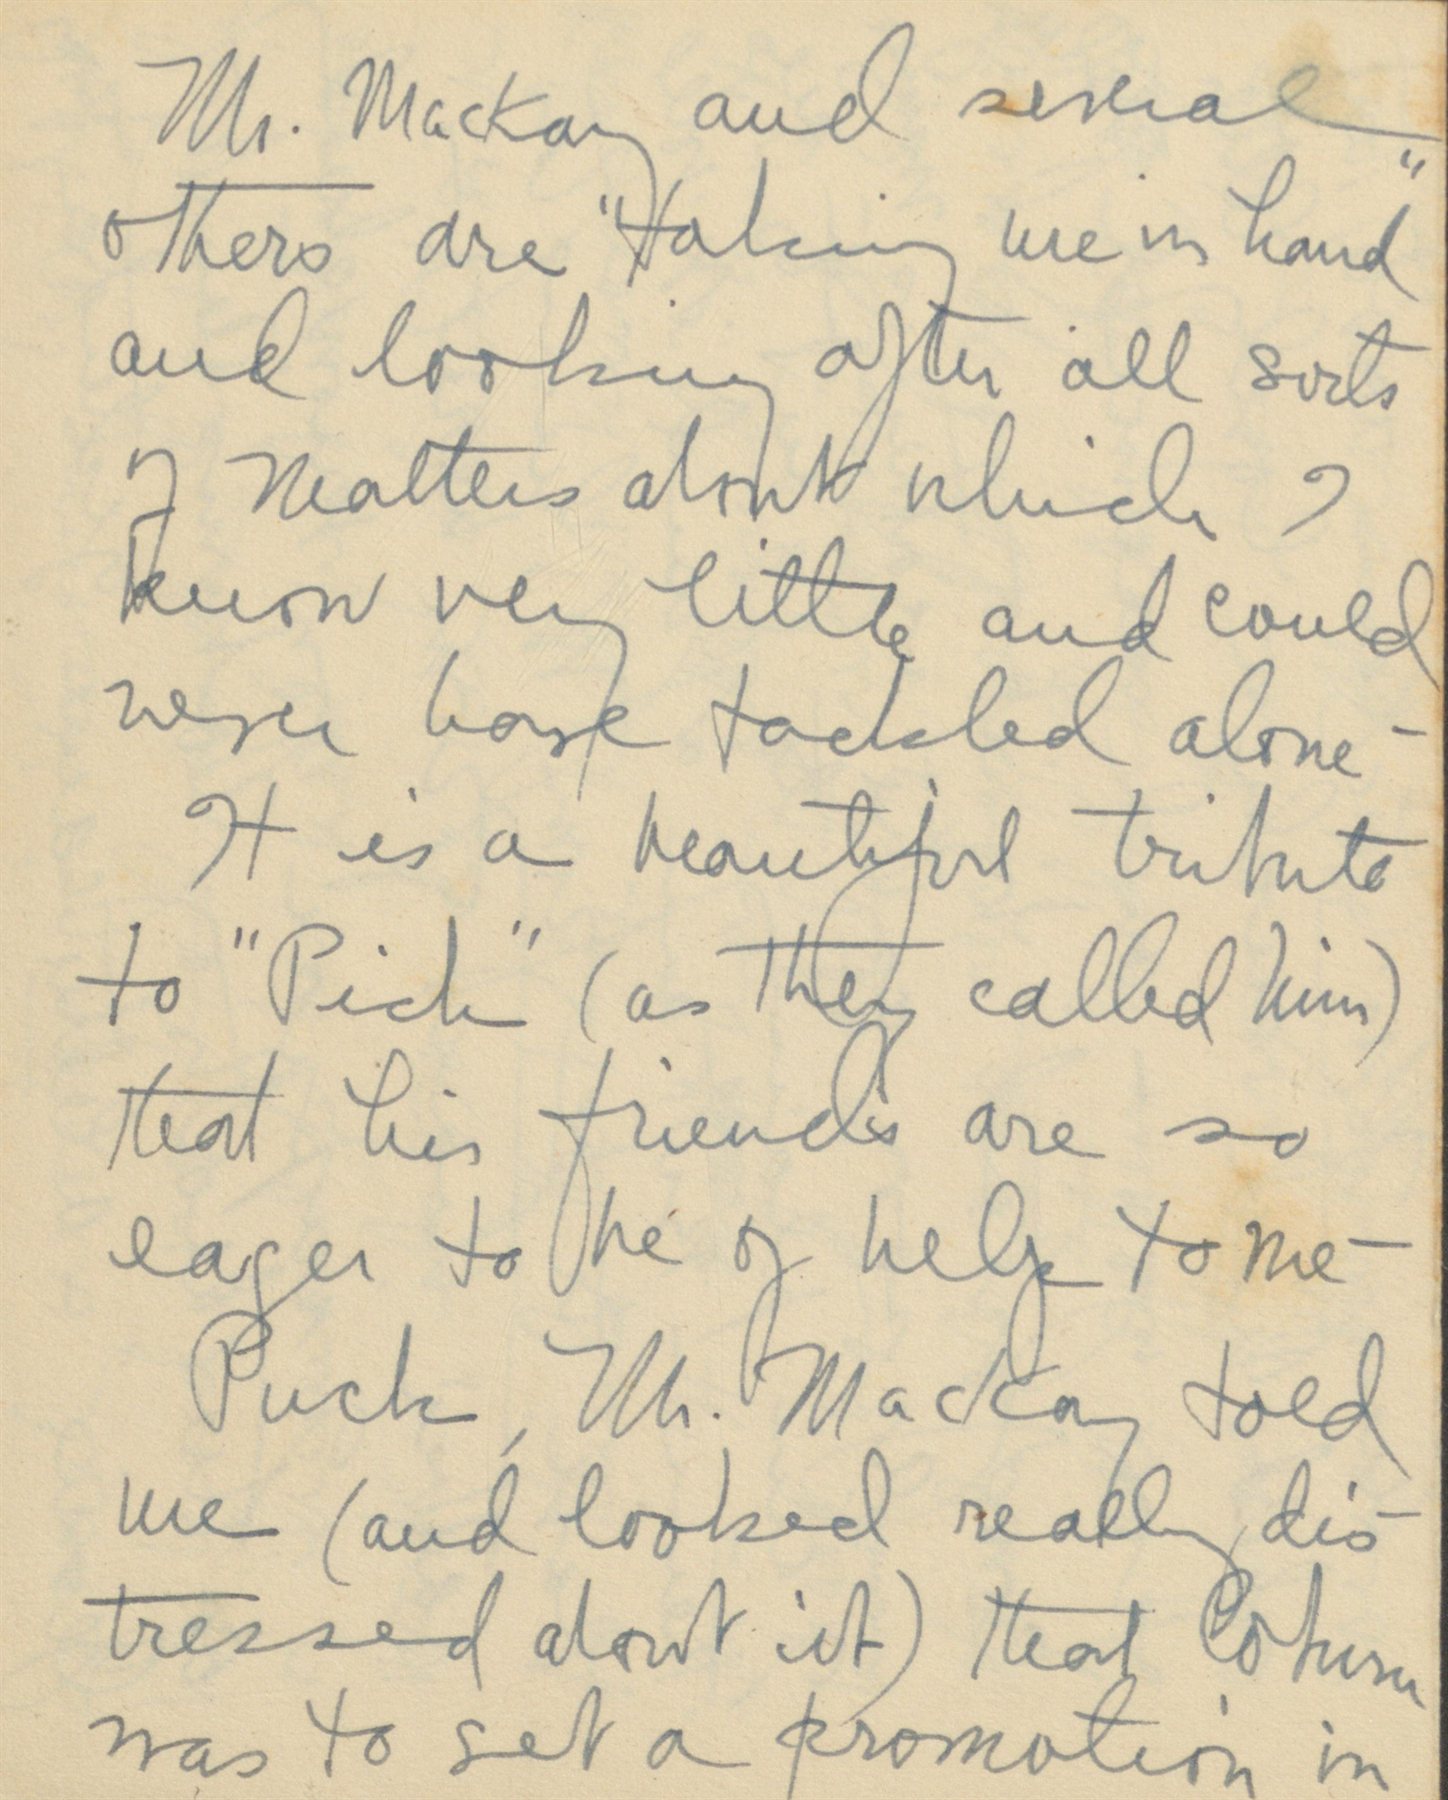 Mr. Mackay and several
others are "taking me in hand"
and looking after all sorts
of matters about which I
know very little and could
never have tackled alone -
It is a beautiful tribute
to "Pick" (as they called him)
that his friends are so
eager to be of help to me -
Puck, Mr. Mackay told
me (and looked really dis-
tressed about it) that Coburn
was to get a promotion in